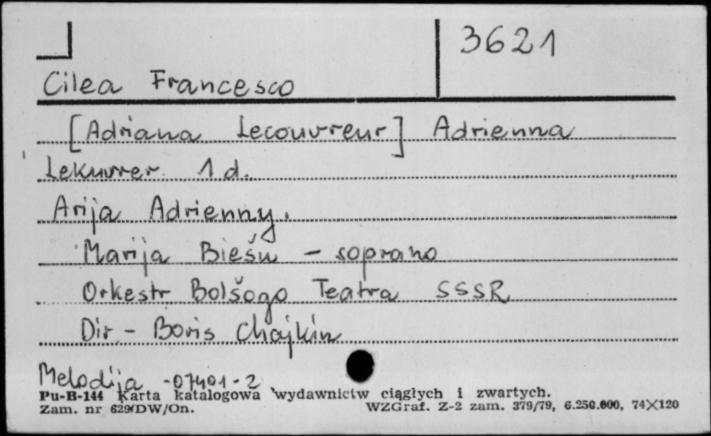 3621
Cilea Francesco
[Adriana Lecouvreur] Adrienna
Lekuvrer 1 d.
Arija Adrienny.
Marija Biešu - soprano
Orkestr Bolšogo Teatra SSSR
Dir. - Boris Chajkin
Melodija -07401-2
Pu-B-144 Karta katalogowa wydawnictw ciągłych i zwartych.
Zam. nr 629/DW/On. WZGraf. Z-2 zam. 379/79, 6.250.000, 74X120